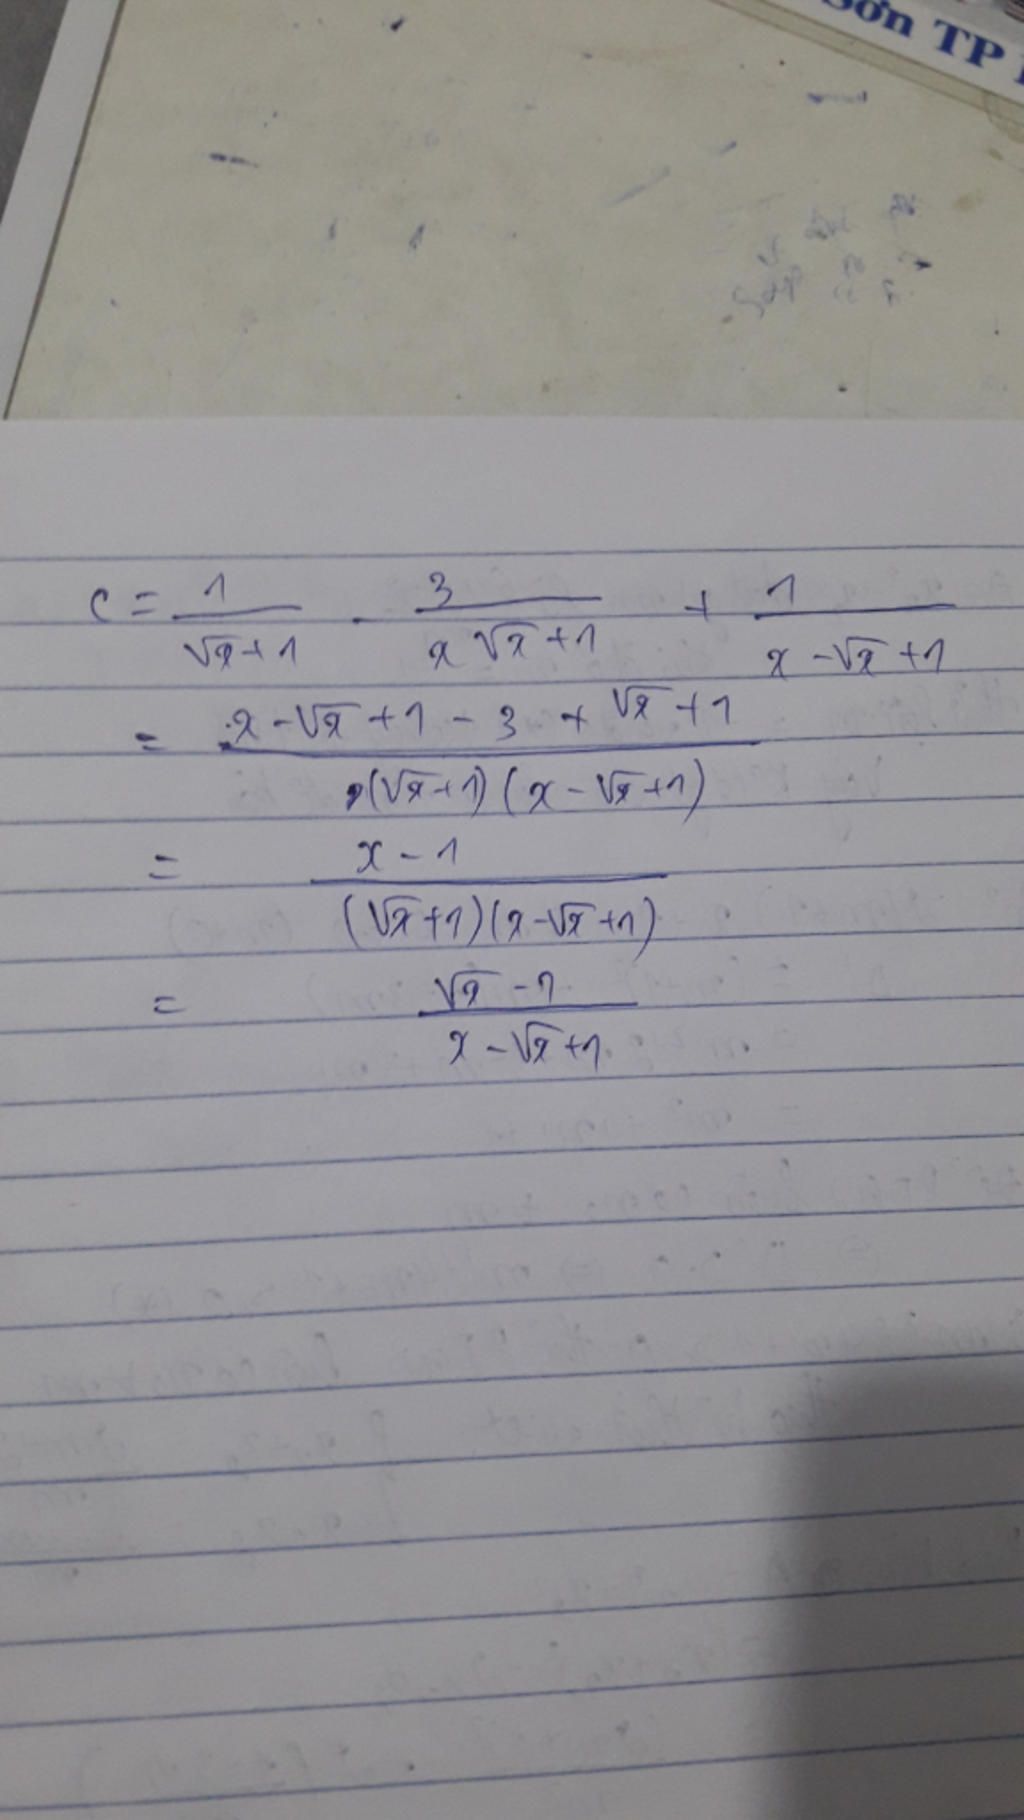 Sơn TP
C = 1/(√x+1) - 3/(x√x+1) + 1/(x-√x+1)
= (x-√x+1-3+√x+1)/((√x+1)(x-√x+1))
= (x-1)/((√x+1)(x-√x+1))
= (√x-1)/(x-√x+1)